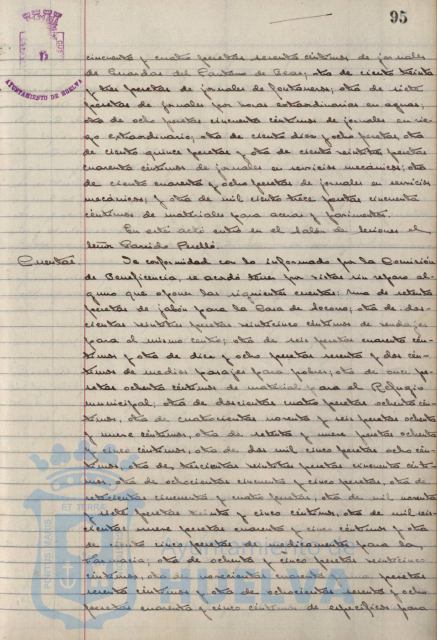 95
AYUNTAMIENTO DE HUELVA
cincuenta y cuatro pesetas sesenta céntimos de jornales
de Guardas del Pantano de Beas; otra de ciento treinta
y tres pesetas de jornales de fontaneros; otra de siete
pesetas de jornales por horas extraordinarias en aguas;
otra de ocho pesetas cincuenta céntimos de jornales en rie-
go extraordinario; otra de ciento diez y ocho pesetas, otra
de ciento quince pesetas y otra de ciento veintisiete pesetas
cuarenta céntimos de jornales en servicios mecánicos; otra
de ciento cuarenta y ocho pesetas de jornales en servicios
mecánicos; y otra de mil ciento trece pesetas cincuenta
céntimos de materiales para aceras y pavimentos.
En este acto entra en el Salón de sesiones el
señor Garrido Perelló.
Cuentas. De conformidad con lo informado por la Comisión
de Beneficencia, se acordó tener por vistas sin reparo al-
guno que oponer las siguientes cuentas: una de setenta
pesetas de jabón para la Casa de Socorro; otra de dos-
cientas veintisiete pesetas veinticinco céntimos de vendajes
para el mismo centro; otra de seis pesetas cuarenta cén-
timos y otra de diez y ocho pesetas noventa y dos cén-
timos de medios pasajes para pobres; otra de once pe-
setas ochenta céntimos de material para el Refugio
municipal; otra de doscientas cuatro pesetas ochenta cén-
timos, otra de cuatrocientas noventa y seis pesetas ochenta
y nueve céntimos, otra de setenta y nueve pesetas ochenta
y cinco céntimos, otra de dos mil cinco pesetas ocho cén-
timos, otra de trescientas veintisiete pesetas cincuenta cénti-
mos, otra de ochocientas cincuenta y cinco pesetas, otra de
setecientas cincuenta y cuatro pesetas, otra de mil noventa
y siete pesetas treinta y cinco céntimos, otra de mil seis-
cientas nueve pesetas cuarenta y cinco céntimos y otra
de ciento cinco pesetas de medicamentos para la
Farmacia; otra de ochenta y cinco pesetas veinticinco
céntimos, otra de novecientas cuarenta y una pesetas
sesenta céntimos y otra de ochocientas sesenta y ocho
pesetas cuarenta y cinco céntimos de específicos para
PORTUS MARIS ET TERRE
Ayuntamiento de
HUELVA